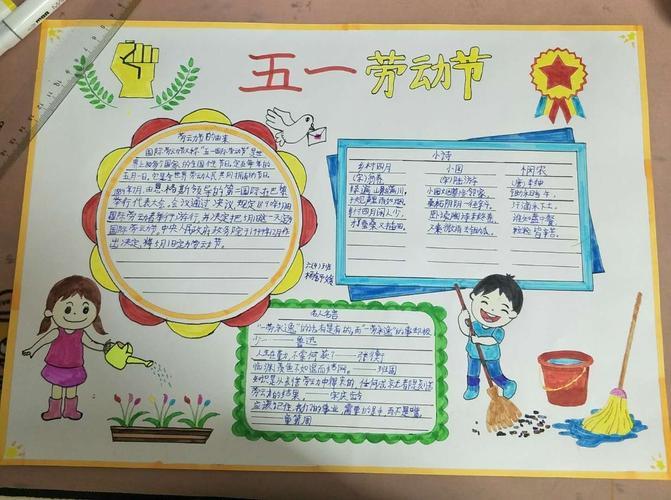 五一劳动节
劳动节的由来
国际劳动节又称"五一国际劳动节"是世
界上80多个国家的全国性节日。定在每年的
五月一日。它是全世界劳动人民共同拥有的节日。
1889年7月,由恩格斯领导的第二国际在巴黎
举行代表大会。会议通过决议,规定1890年5月1日
国际劳动者举行游行,并决定把5月1这一天定为
国际劳动节。中央人民政府政务院于1949年12月作
出决定,将5月1日定为劳动节。
六(4)班
小诗
乡村四月
(宋)翁卷
绿遍山原白满川,
子规声里雨如烟。
乡村四月闲人少,
才了蚕桑又插田。
小园
(宋)陆游
小园烟草接邻家,
桑柘阴阴一径斜。
卧读陶诗未终卷,
又乘微雨去锄瓜。
悯农
(唐)李绅
锄禾日当午,
汗滴禾下土。
谁知盘中餐,
粒粒皆辛苦。
名人名言
"一劳永逸"的话有是有的,而"一劳永逸"的事却极
少——鲁迅
人生在勤,不索何获?——张衡
临渊羡鱼不如退而结网。——班固
——宋庆龄